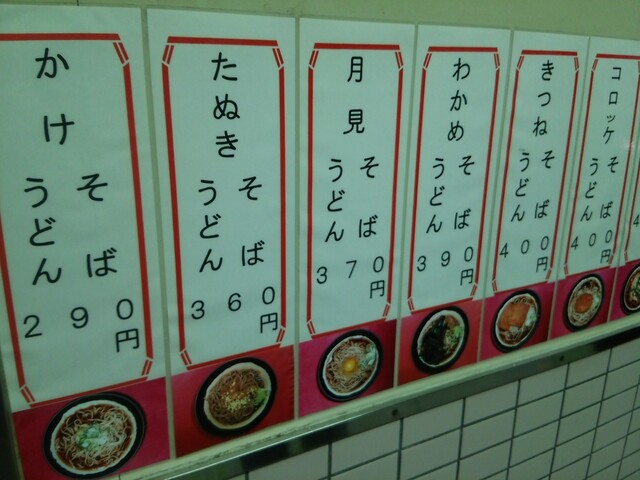 かけ
そば
うどん
290円
たぬき
そば
うどん
360円
月見
そば
うどん
370円
わかめ
そば
うどん
390円
きつね
そば
うどん
400
コロッケ
そば
うどん
400
4